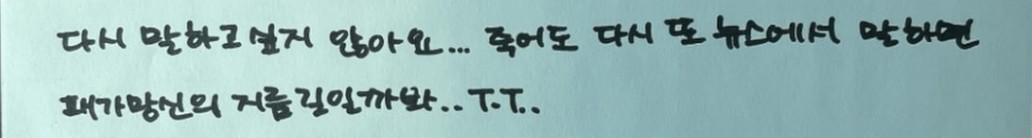 다시 말하고 싶지 않아요... 죽어도 다시 또 뉴스에서 말하면
패가망신의 지름길일까봐.. T.T..